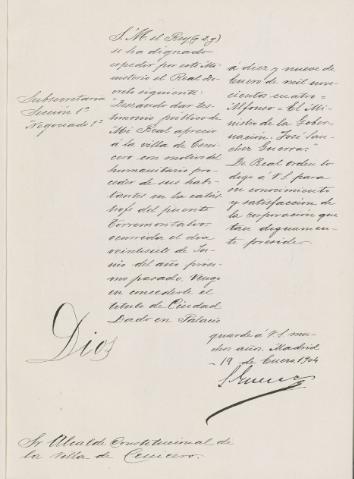 Subsecretaría
Sección 1ª
Negociado 1º
S. M. el Rey (q. D. g.)
se ha dignado
expedir por este Mi-
nisterio el Real De-
creto siguiente:
"Queriendo dar tes-
timonio público de
Mi Real aprecio
á la villa de Ceni-
cero con motivo del
humanitario pro-
ceder de sus habi-
tantes en la catás-
trofe del puente
Torremontalvo
ocurrida el día
veintisiete de Ju-
nio del año próxi-
mo pasado. Vengo
en concederle el
título de Ciudad
Dado en Palacio
á diez y nueve de
Enero de mil nove-
cientos cuatro =
Alfonso = El Mi-
nistro de la Gober-
nación. José Sán-
chez Guerra."
De Real orden lo
digo á V. S. para
su conocimiento
y satisfacción de
la corporación que
tan dignamen-
te preside.
Dios
guarde á V. S. mu-
chos años. Madrid
19 de Enero 1904
S. Guerra
Sr. Alcalde Constitucional de
la Villa de Cenicero.